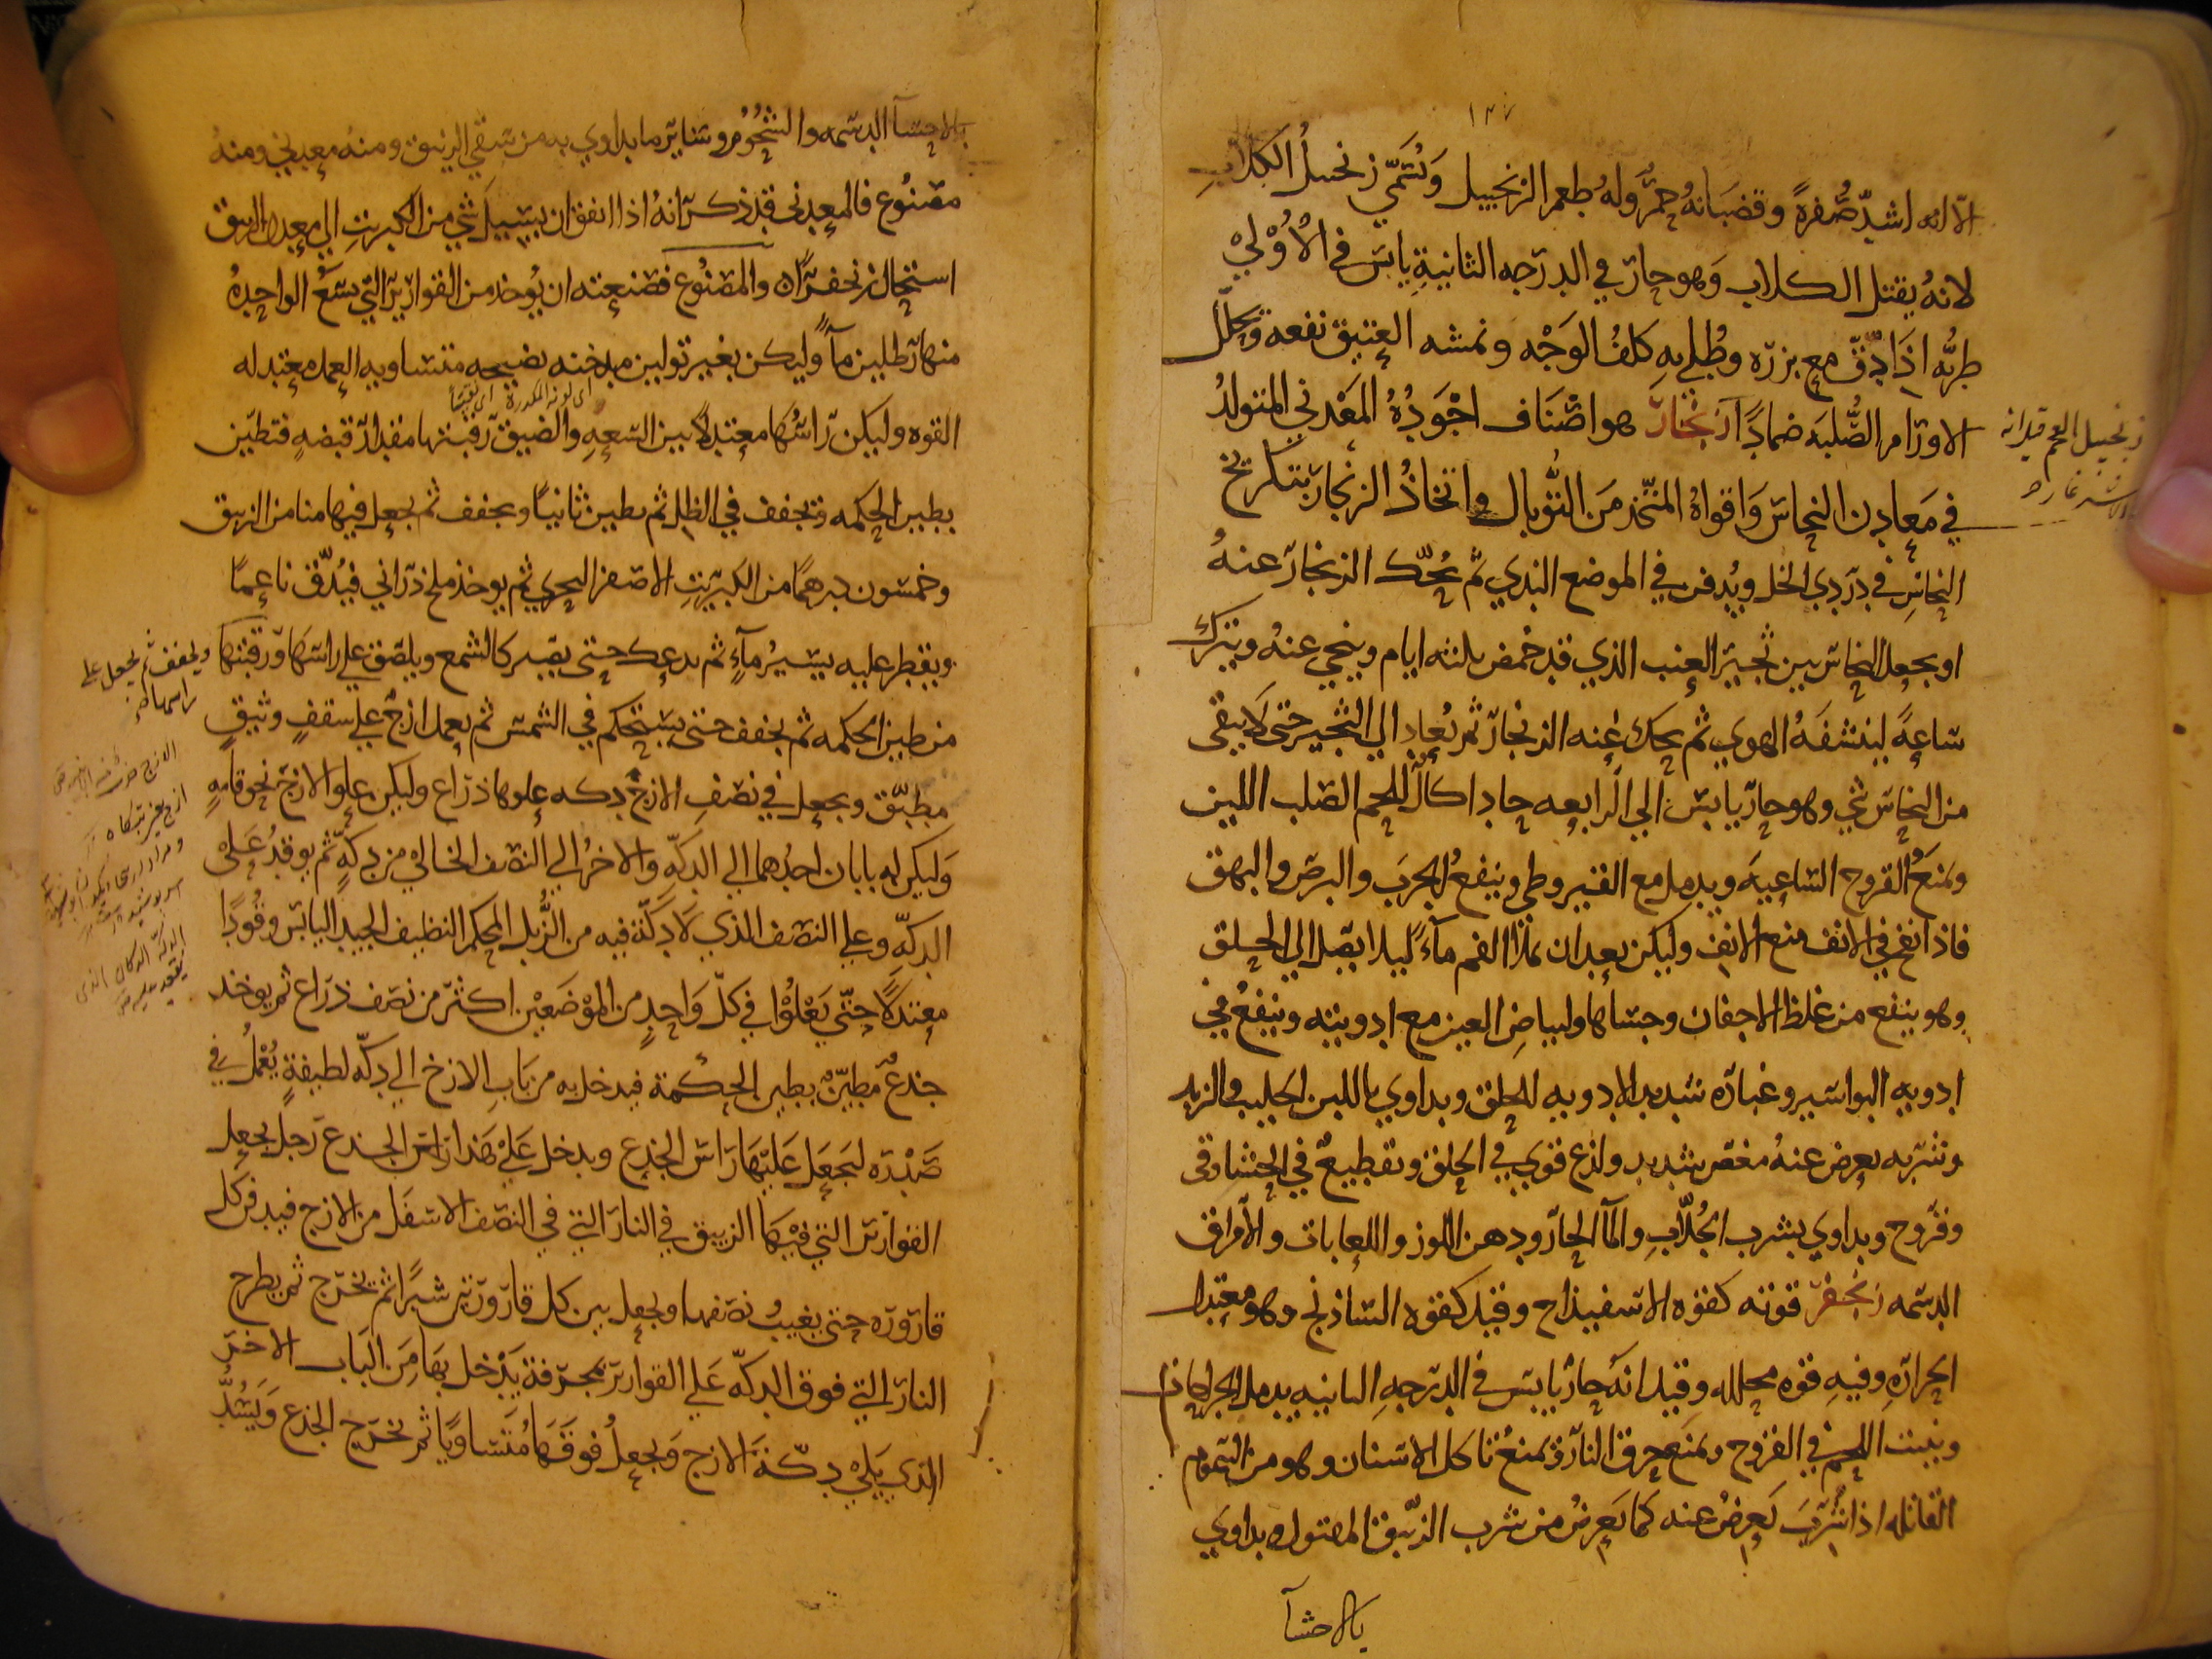 ١٣٧
الا انه اشد صفرةً وقضبانه حمرٌ وله طعم الزنجبيل وَيُسَمّي زنجبيل الكلاب
لانهُ يقتل الكلاب وَهو حارّ في الدرجه الثانيةِ يابس في الاُوْلي
طريُّه اذَا دُقّ مع بزره وطُلي بهِ كلفُ الوَجْه ونمشه العتيق نفعه ويحلّل
الاورام الصُّلبَه ضمادًا زنجار هو اصْنَاف اجْوَدُهُ المَعْدني المتولدُ
في مَعادِن النحاس وَاقواهُ المتّخذ مَن التُّوبال واتخاذُ الزنجار بتكريج
النحاسِ في دردي الخل ويُدفن في الموضع الندي ثم يُحكّ الزنجار عنهُ
او يجعل النحاس بين ثجير العنب الذي قد حُمض ثلثه ايام وينحي عنهُ ويترك
سَاعةً لينشفَهُ الهوي ثم يحك عنه الزنجار ثم يُعاد الي الثجير حتى لَا يبقى
من النحاس شي وهو حارّ يابس الي الرابعه حاد اكالٌ للحم الصلب اللين
ويمنعُ القروح الساعيهَ ويدمل مع القيروطي وينفعُ الجرَب والبرص والبهق
فاذا نفخ في الانف منع الانف وليكن بعد ان يملأ الفم مآءً ليلا يصل الي الحلق
وهو ينفع من غلظ الاجفان وجساها ولبياضِ العين مع ادويته وينفعُ في
ادويه البواسير وغباره شديد الادويه للحلق ويداوي باللبن الحليب والزبد
وشربه يعرض عنهُ مغص شديد ولذع قوي في الحلق وتقطيعٌ في الحشا وقي
وقروح ويداوي بشرب الجُلّابِ والمآ الحارّ ودهن اللوز واللعابات والأمراق
الدسمه زنجفر قوته كقوه الاسفيذاج وقيل كقوه الشاذنج وهو معتدل
الحرارهِ وفيهِ قوه محلله وقيل انهُ حارٌ يابس في الدرجهِ الثانيه يدمل الجراحات
وينبت اللحم في القروح ويمنع حرق النار ويمنعُ تاكل الاسنان وهو من السَّموم
القاتله اذا شُربَ يَعرضُ عنه كما يَعرضُ من شرب الزّيبق المقتول ويداوي
بالاحسآ
زنجبيل العجم قيل انه
الاشترغاز
بالاحسآ الدسمه والشحُوُم وسَاير ما يداوي به من سُقي الزيبق ومنهُ معدني ومنهُ
مصنُوع فالمعدني قد ذكر انهُ اذا اتفق ان يسيل شي من الكبريتِ الي معدن الزيبق
استحال زنجفرًا والمصنُوع فصنعته ان يُوخذ من القوارير التي يسَعُ الواحدهُ
منها رطلين مآءً وليكن بغير تولين مدخنه نضيجه متساويه العمل معتدله
اي لونه المكدرة
القوه وليكن راسُها معتدلًا بين السَعهِ والضيق رقبتها مقدار قبضهٍ فتطيّن
بطين الحكمه وتجفف في الظل ثم يطين ثانيًا ويجفف ثم يجعل فيها منا من الزيبق
وخمسون درهمًا من الكبريتِ الاصفر البحري ثم يوخذ ملح ذرآني فيُدّق ناعمًا
ويقطر عليه يسيرُ مآءٍ ثم يدعك حتى يصير كالشمع ويلصق علي راسهَا ورقبتها ويجفف ثم يجعل على
راسها طين
من طين الحكمه ثم يجفف حتى يستحكم في الشمس ثم يعمل ازجٌ علي سقفٍ وثيقٍ
مطبّق ويجعل في نصفِ الازج دكه علوها ذراع وليكن علو الازج نحو قامهٍ
وَليكن له بابان احدُهما الي الدكّهِ والاخرُ الي النصف الخالي من دكهٍ ثم يوقدُ عَلى
الدكّهِ وعلي النصف الذي لَا دَكّةَ فيه من الزُّبل المحكم النظيف الجيد اليابس وقُودًا
معتدلًا حتّي يَعْلُوْا في كلّ وَاحدٍ من المَوْضعَيْن اكثر من نصف ذراع ثم يوخذ
جذعٌ مطيّنٌ بطين الحكمة فيدخل به من بَابِ الازج الي دكّه لطيفةٍ يُعْملُ في
صَدْره ليَجعَل عَليْهَا رَاس الجذع ويدخل عَليْ هَذا رَاس الجذع رجل يجعل
القوارير التي فيْهَا الزيبق في النار التي في النصف الاسفَل من الازج فيدفن كل
قاروره حتى يغيبُ نصفها ويجعل بين كل قارورتين شبرًا ثم يخرج ثم يطرح
النار التي فوق الدكّه عَلي القوارير بمجرفة يَدْخل بهَا مِنَ البَاب الاخر
الذي يَليْ دكّهَ الازج وَيجعلُ فوقَهَا مُتسَاويًا ثم يخرج الجذع وَيسُدُّ
الدكّه الدكان الذي
يقعد عليه